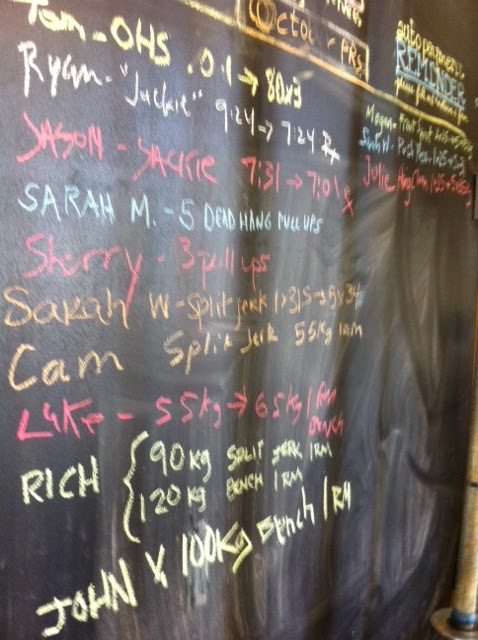 October PRs
Tom - OHS . 0.1 → 80x3
Ryan - "Jackie" 9:24 → 7:24 Rx
JASON - JACKIE 7:31 → 7:01 Rx
SARAH M. - 5 DEAD HANG PULL UPS
Sherry - 3 pull ups
Sarah W - split jerk
Cam Split Jerk 55kg 1RM
LUKE - 55kg → 65kg 1RM
BENCH
RICH { 90KG SPLIT JERK 1RM
120KG BENCH 1RM
JOHN X 100Kg Bench 1RM
autopayment
REMINDER
Megan - Front Squat
Sarah W - Push Press
Julie Hang Clean